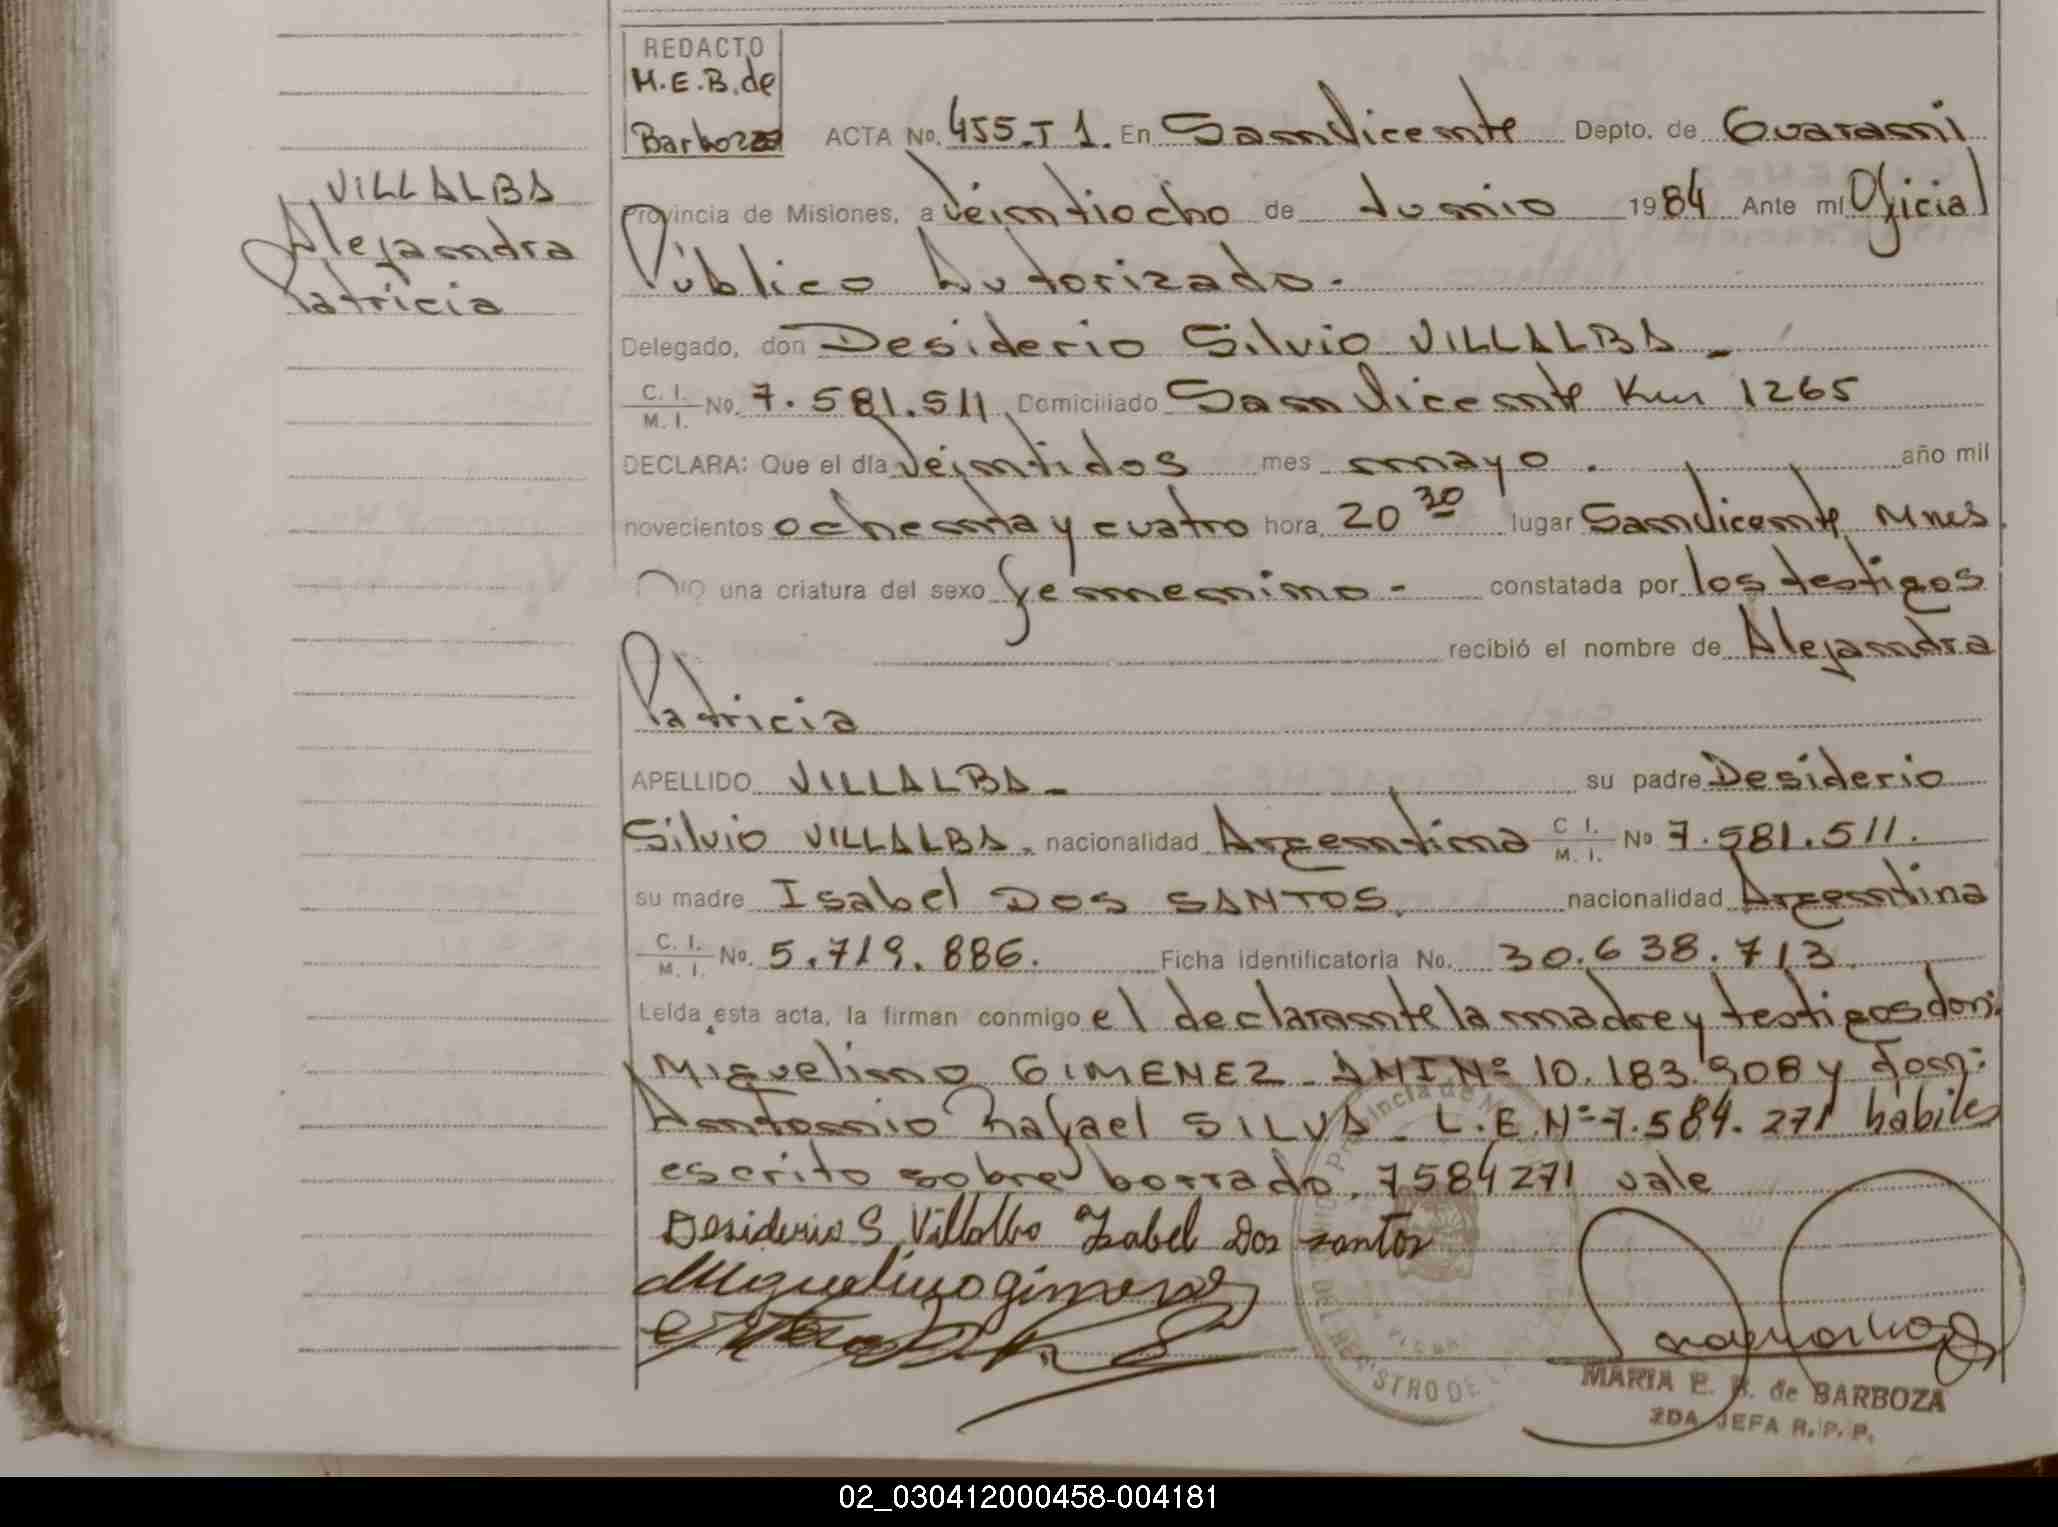 REDACTO
M.E.B. de
Barboza
ACTA No. 455.T 1. En San Vicente Depto. de Guarani
Provincia de Misiones, a Veintiocho de Junio 1984 Ante mí Oficial
Público Autorizado.
VILLALBA
Alejandra
Patricia
Delegado, don Desiderio Silvio VILLALBA -
C. I. / M. I. No. 7.581.511, Domiciliado San Vicente Km 1265
DECLARA: Que el día Veintidos mes mayo . año mil
novecientos ochenta y cuatro hora, 20 30 lugar San Vicente Mnes
una criatura del sexo femenino - constatada por los testigos
recibió el nombre de Alejandra
Patricia
APELLIDO VILLALBA - su padre Desiderio
Silvio VILLALBA. nacionalidad Argentina C. I. / M. I. No 7.581.511.
su madre Isabel DOS SANTOS, nacionalidad Argentina
C. I. / M. I. No. 5.719.886. Ficha identificatoria No. 30.638.713.
Leída esta acta, la firman conmigo el declarante la madre y testigos don:
Miguelino GIMENEZ - DNI Nº 10.183.908 y don:
Antonio Rafael SILVA - L.E.Nº 7.584.271 hábiles
escrito sobre borrado. 7584271 vale
Desiderio S Villalba Isabel Dos santos
Miguelino gimenez
MARIA E. B. de BARBOZA
2DA JEFA R. P. P.
02_030412000458-004181